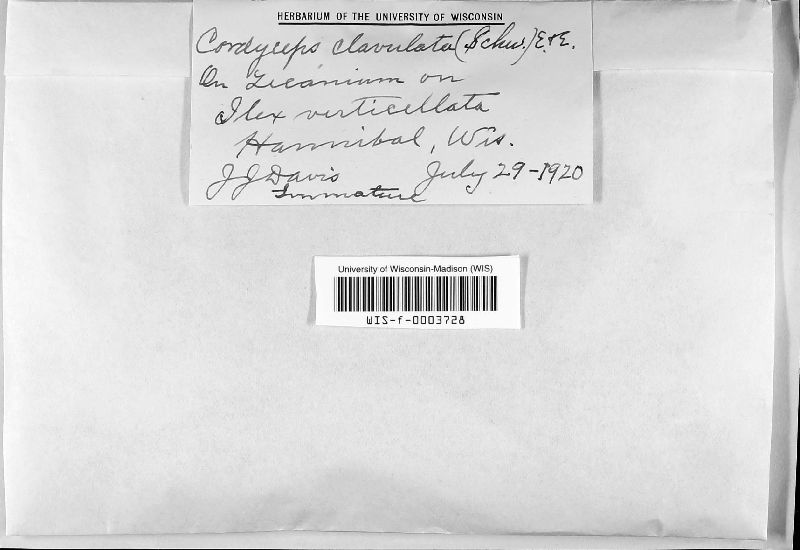 HERBARIUM OF THE UNIVERSITY OF WISCONSIN
Cordyceps clavulata (Schw.) E. & E.
On Lecanium on
Ilex verticillata
Hannibal, Wis.
J J Davis July 29-1920
Immature
University of Wisconsin-Madison (WIS)
WIS-f-0003728